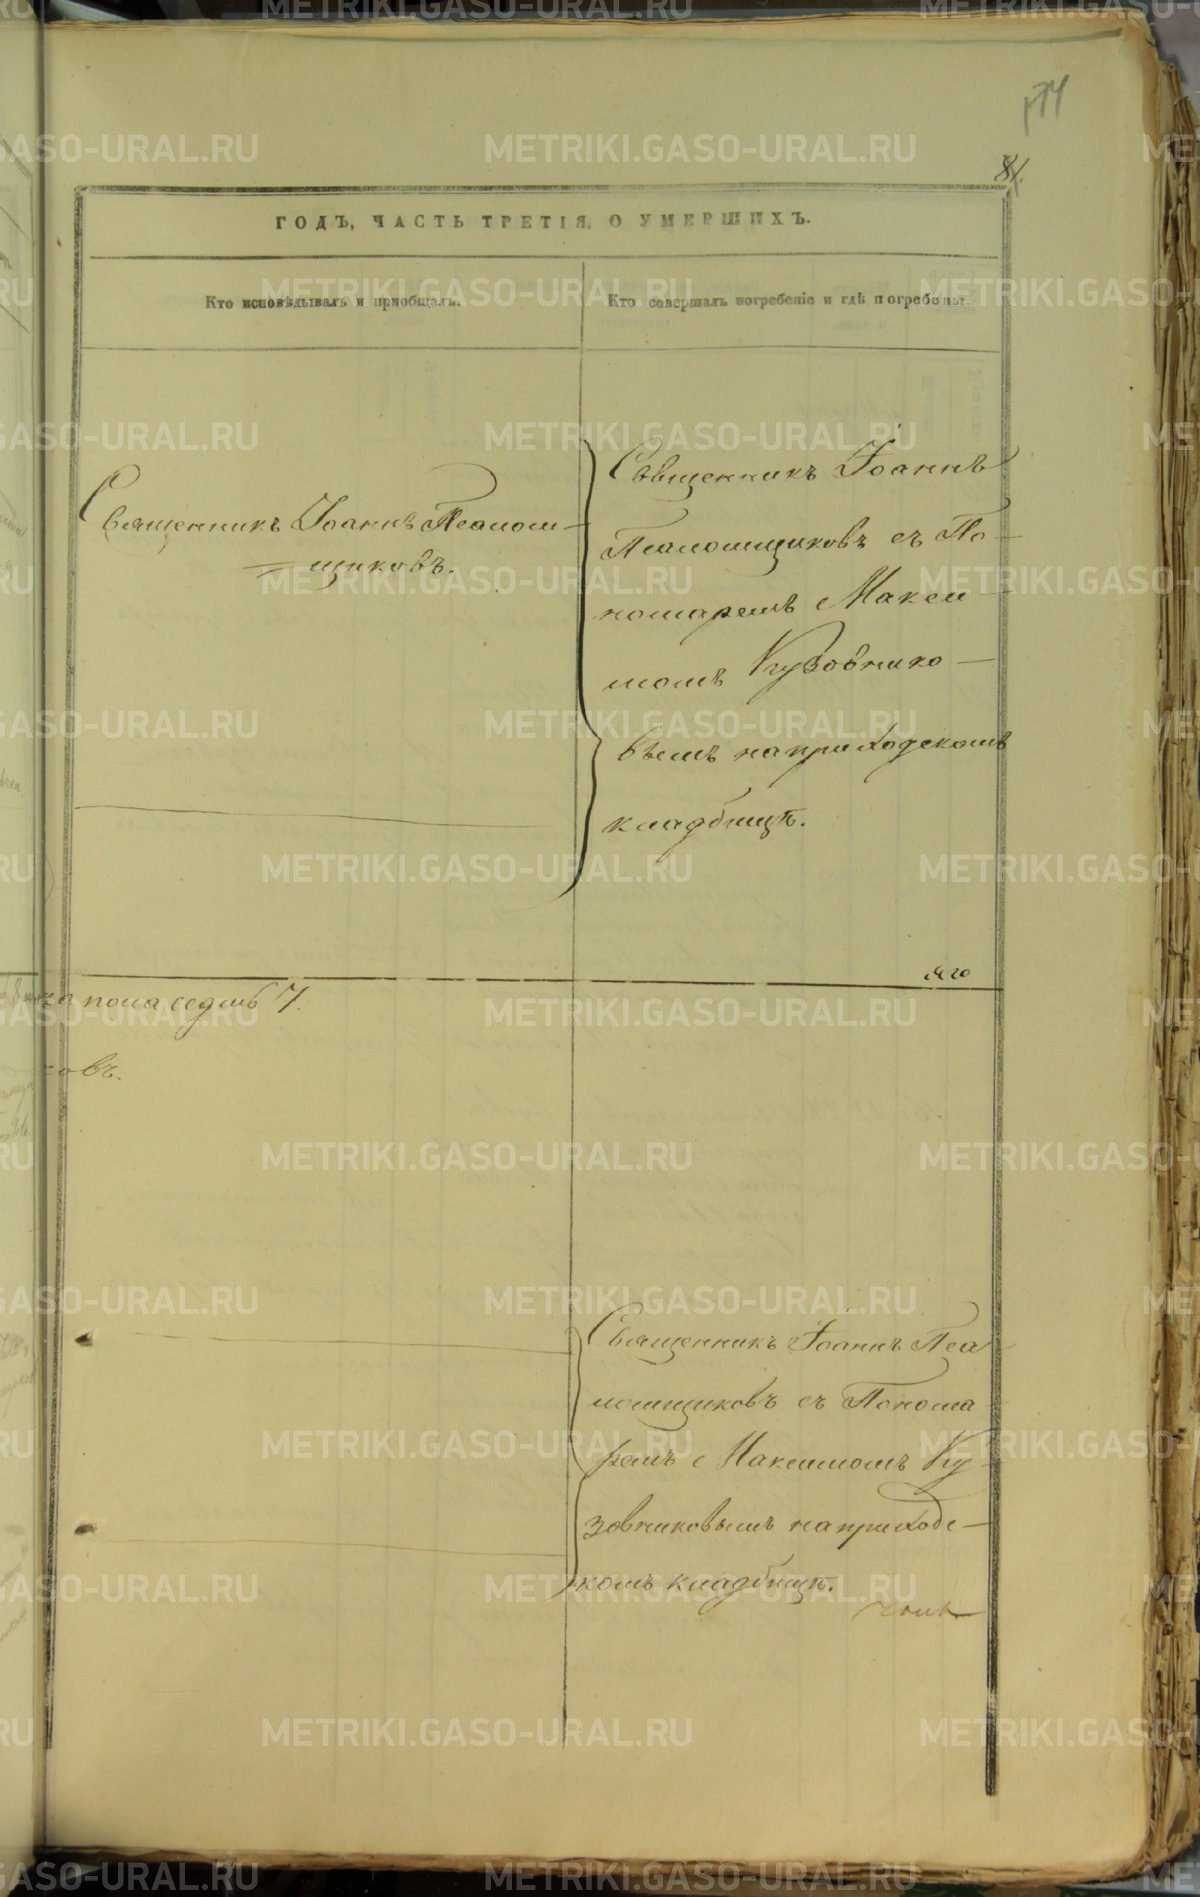 174
81.
ГОДЪ, ЧАСТЬ ТРЕТІЯ, О УМЕРШИХЪ.
Кто исповѣдывалъ и пріобщалъ.
Кто совершалъ погребеніе и гдѣ погребены.
Священникъ Іоаннъ Псалом-
щиковъ.
Священникъ Іоаннъ
Псаломщиковъ съ По-
номаремъ Макси
момъ Кузовнико-
вымъ на приходскомъ
кладбищѣ.
ка пола седмь 7.
ковъ.
Священникъ Іоаннъ Пса
ломщиковъ съ Понома
ремъ Максимомъ Ку-
зовниковымъ на приходс-
комъ кладбищѣ.
METRIKI.GASO-URAL.RU